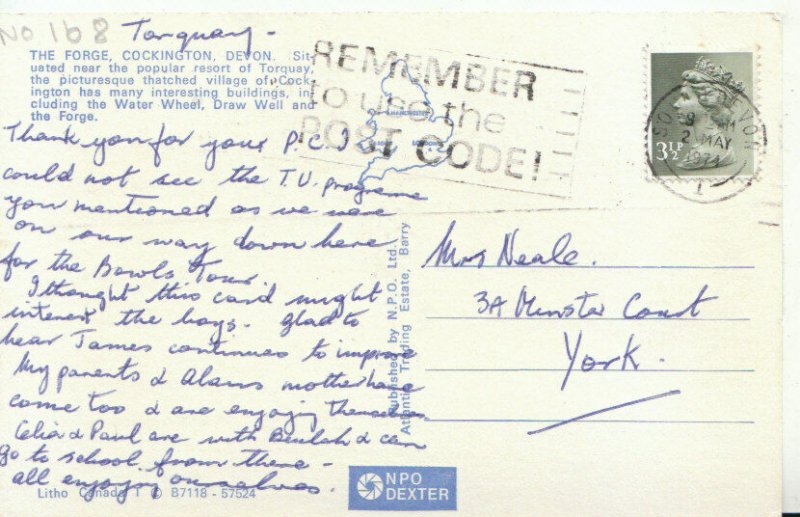 No 168
Torquay -
THE FORGE, COCKINGTON, DEVON. Sit-
uated near the popular resort of Torquay,
the picturesque thatched village of Cock-
ington has many interesting buildings, in-
cluding the Water Wheel, Draw Well and
the Forge.
REMEMBER
to use the
POST CODE!
DEVON
2 MAY
1974
1
3½P
Thank you for your P.C. I
could not see the T.V. programe
you mentioned as we were
on our way down here
for the Bowls Tour.
I thought this card might
interest the boys. Glad to
hear James continues to improve
My parents & Alans mother have
come too & are enjoying themselves
Celia & Paul are with Beulah & can
go to school from there -
all enjoying ourselves.
Mrs Neale.
3A Minster Court
York.
Published by N.P.O. Ltd.,
Atlantic Trading Estate, Barry
NPO
DEXTER
Litho Canada 1 © B7118 - 57524